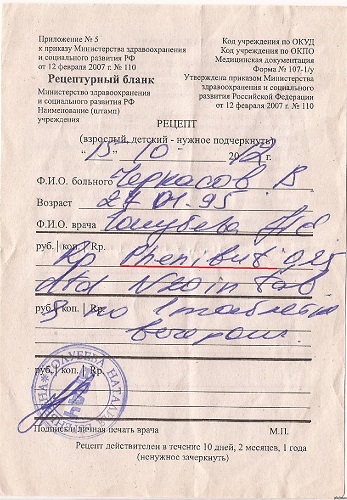 Приложение № 5
к приказу Министерства здравоохранения
и социального развития РФ
от 12 февраля 2007 г. № 110
Рецептурный бланк
Министерство здравоохранения
и социального развития РФ
Наименование (штамп)
учреждения
Код учреждения по ОКУД
Код учреждения по ОКПО
Медицинская документация
Форма № 107-1/у
Утверждена приказом Министерства
здравоохранения и социального
развития Российской Федерации
от 12 февраля 2007 г. № 110
РЕЦЕПТ
(взрослый, детский - нужное подчеркнуть)
"15" 10 2012 г.
Ф.И.О. больного Черкасов В
Возраст 27.01.95
Ф.И.О. врача Голубева
руб. | коп. | Rp.
Rp Phenibut 0,25
dtd N20 in tab.
руб. | коп. | Rp.
S по 1 таблетке
вечером.
руб. | коп. | Rp.
ГОЛУБЕВА НАТАЛЬЯ
врач
Подпись и личная печать врача М.П.
Рецепт действителен в течение 10 дней, 2 месяцев, 1 года
(ненужное зачеркнуть)